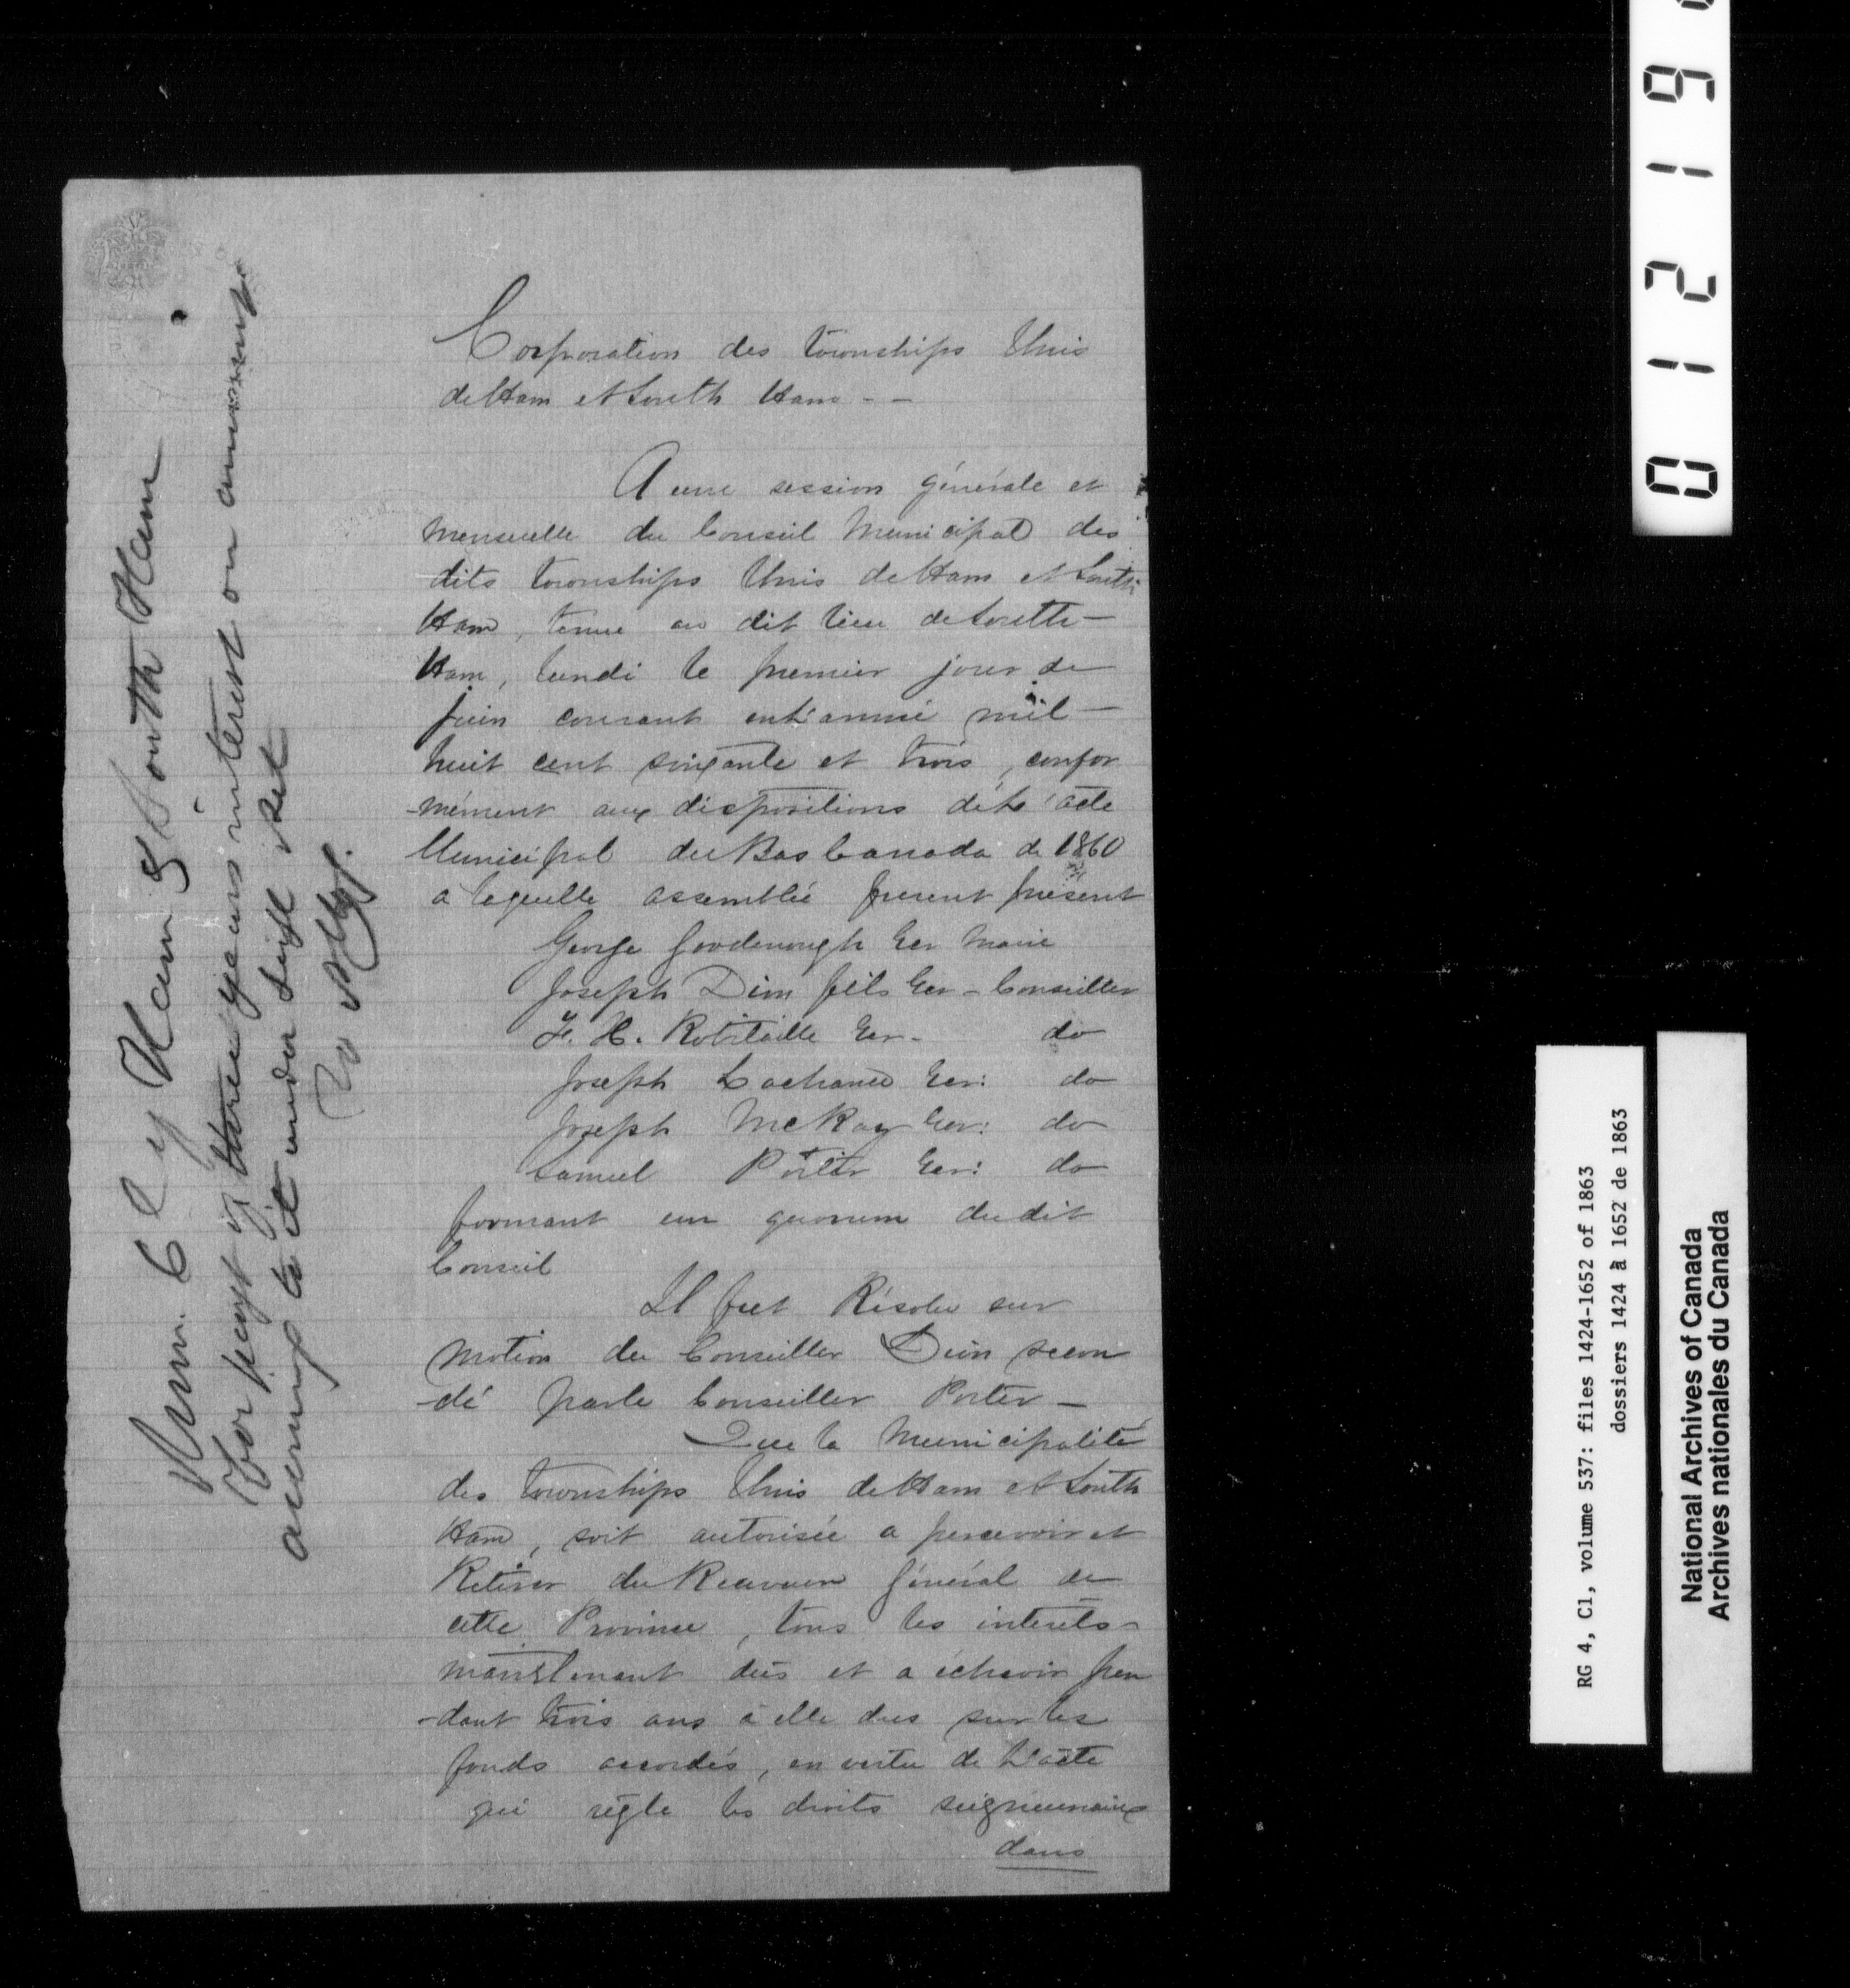 Corporation des townships Unis
de Ham et South Ham - -
A une session générale et
mensuelle du Conseil Municipal des
dits townships Unis de Ham et South
Ham, tenue au dit lieu de South —
Ham, lundi le premier jour de
juin courant en l'année mil —
huit cent soixante et trois, confor
-mément aux dispositions de l'acte
Municipal du Bas Canada de 1860
a laquelle assemblée furent présent
George Goodenough Ecr Maire
Joseph Dion fils Ecr - Conseiller
F. X. Robitaille Ecr. do
Joseph Lachance Ecr: do
Joseph McKay Ecr: do
Samuel Porter Ecr: do
formant un quorum du dit
Conseil
Il fut Résolu sur
motion du Conseiller Dion secon
-dé par le Conseiller Porter —
Que la Municipalité
des townships Unis de Ham et South
Ham, soit autorisée a percevoir et
Retirer du Receveur Général de
cette Province, tous les interets -
maintenant dûs et a échevoir pen
-dant trois ans à elle dus sur les
fonds accordés, en vertu de L'acte
qui règle les droits seigneuriaux
dans
Mun. Cl of Ham & South Ham
For paymt of three years interest on amount
accruing to it under Seigl Act
01219
RG 4, C1, volume 537: files 1424-1652 of 1863
dossiers 1424 à 1652 de 1863
National Archives of Canada
Archives nationales du Canada